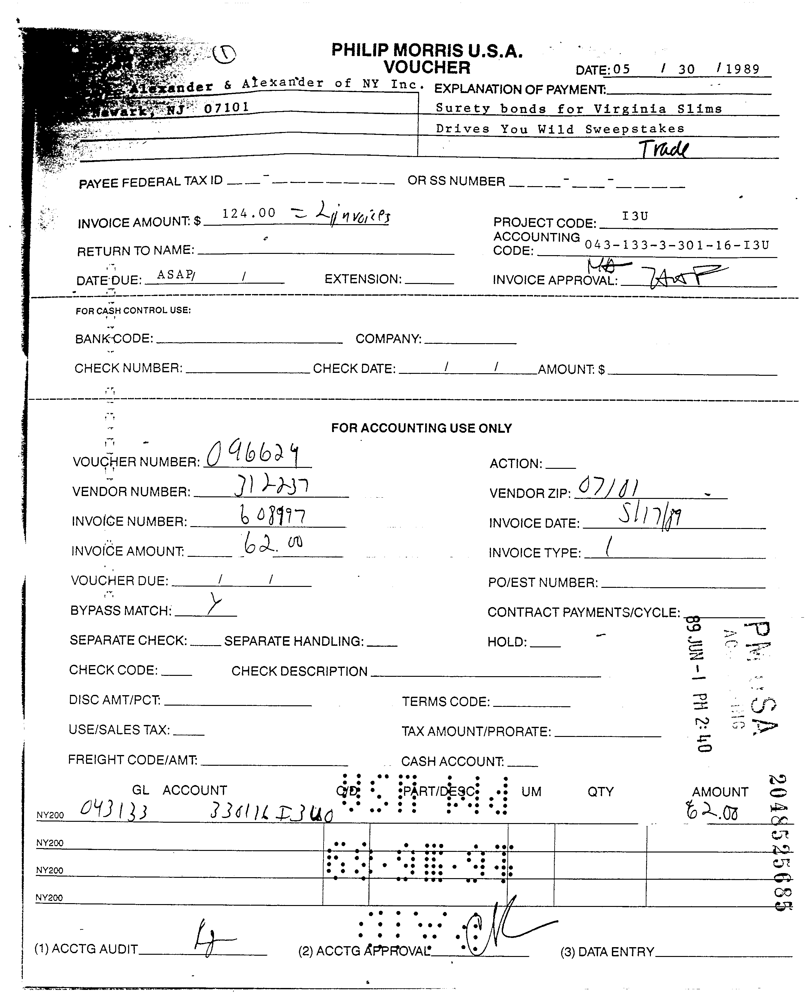 PHILIP MORRIS U.S.A.
VOUCHER
DATE: 05 / 30 / 1989
Alexander & Alexander of NY Inc.
Newark, NJ 07101
EXPLANATION OF PAYMENT:
Surety bonds for Virginia Slims
Drives You Wild Sweepstakes
Trade
PAYEE FEDERAL TAX ID __ __ - __ __ __ __ __ __ __ OR SS NUMBER __ __ __ - __ __ - __ __ __ __
INVOICE AMOUNT: $ 124.00 = 2 invoices
PROJECT CODE: I3U
RETURN TO NAME:
ACCOUNTING CODE: 043-133-3-301-16-I3U
DATE DUE: ASAP/ / EXTENSION:
INVOICE APPROVAL:
FOR CASH CONTROL USE:
BANK CODE: COMPANY:
CHECK NUMBER: CHECK DATE: / / AMOUNT: $
FOR ACCOUNTING USE ONLY
VOUCHER NUMBER: 096624 ACTION:
VENDOR NUMBER: 312237 VENDOR ZIP: 07101
INVOICE NUMBER: 608997 INVOICE DATE: 5/17/89
INVOICE AMOUNT: 62.00 INVOICE TYPE: 1
VOUCHER DUE: / / PO/EST NUMBER:
BYPASS MATCH: Y CONTRACT PAYMENTS/CYCLE:
SEPARATE CHECK: SEPARATE HANDLING: HOLD:
CHECK CODE: CHECK DESCRIPTION
DISC AMT/PCT: TERMS CODE:
USE/SALES TAX: TAX AMOUNT/PRORATE:
FREIGHT CODE/AMT: CASH ACCOUNT:
PM USA
89 JUN -1 PM 2:40
GL ACCOUNT C/D PART/DESC UM QTY AMOUNT
NY200 043133 330116 I3U0 62.00
NY200
NY200
NY200
2048525685
(1) ACCTG AUDIT (2) ACCTG APPROVAL (3) DATA ENTRY